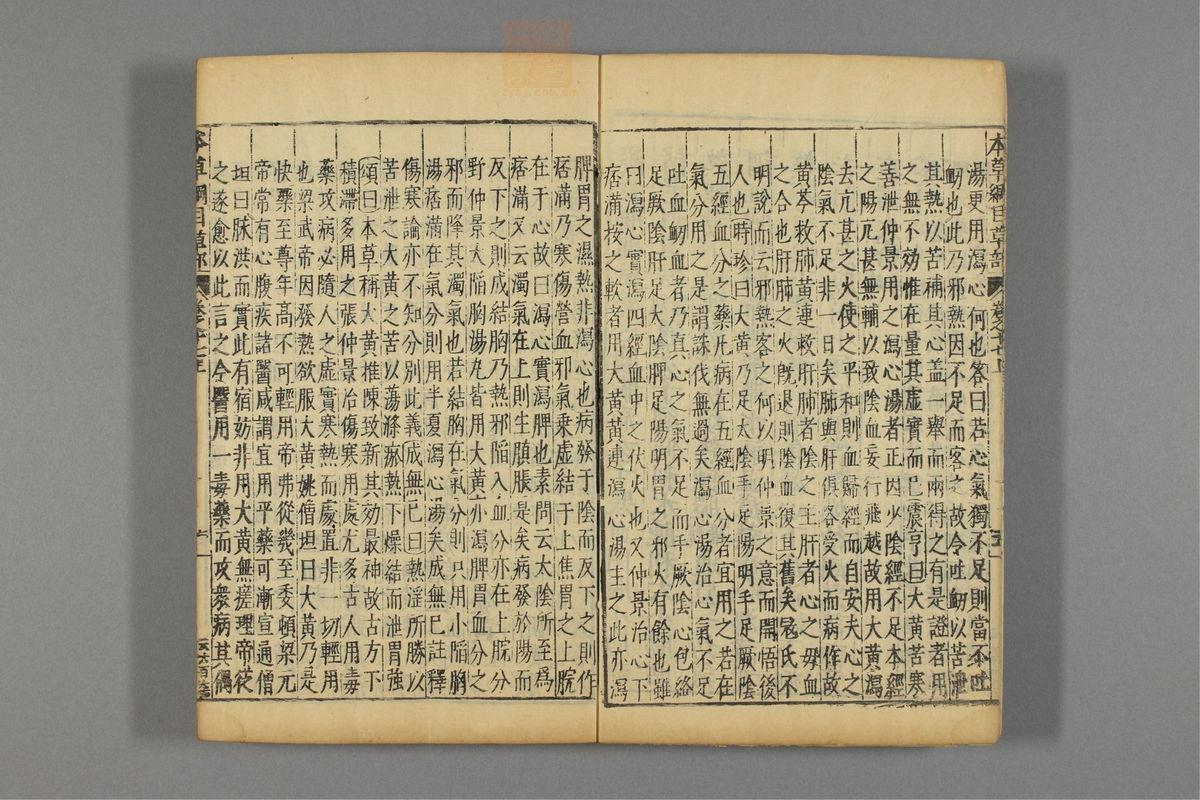 本草綱目草部
卷之十七上
五
湯更用瀉心何也答曰若心氣獨不足則當不吐
衂也此乃邪熱因不足而客之故令吐衂以苦泄
其熱以苦補其心盖一舉而兩得之有是證者用
之無不効惟在量其虛實而已震亨曰大黄苦寒
善泄仲景用之瀉心湯者正因少陰經不足本經
之陽亢甚無輔以致陰血妄行飛越故用大黄瀉
去亢甚之火使之平和則血歸經而自安夫心之
陰氣不足非一日矣肺與肝俱各受火而病作故
黄芩救肺黄連救肝肺者陰之主肝者心之母血
之合也肝肺之火既退則陰血復其舊矣冦氏不
明說而云邪熱客之何以明仲景之意而開悟後
人也時珍曰大黄乃足太陰手足陽明手足厥陰
五經血分之藥凡病在五經血分者宜用之若在
氣分用之是謂誅伐無過矣瀉心湯治心氣不足
吐血衂血者乃真心之氣不足而手厥陰心包絡
足厥陰肝足太陰脾足陽明胃之邪火有餘也雖
曰瀉心實瀉四經血中之伏火也又仲景治心下
痞滿按之軟者用大黄黄連瀉心湯主之此亦瀉
脾胃之濕熱非瀉心也病發于陰而反下之則作
痞滿乃寒傷營血邪氣乘虛結于上焦胃之上脘
在于心故曰瀉心實瀉脾也素問云太陰所至爲
痞滿又云濁氣在上則生䐜脹是矣病發於陽而
反下之則成結胸乃熱邪陷入血分亦在上脘分
野仲景大陷胸湯丸皆用大黄亦瀉脾胃血分之
邪而降其濁氣也若結胸在氣分則只用小陷胸
湯痞滿在氣分則用半夏瀉心湯矣成無已註釋
傷寒論亦不知分別此義成無已曰熱淫所勝以
苦泄之大黄之苦以蕩滌瘀熱下燥結而泄胃強
頌曰本草稱大黄推陳致新其効最神故古方下
積滯多用之張仲景治傷寒用處尤多古人用毒
藥攻病必隨人之虛實寒熱而處置非一切輕用
也梁武帝因發熱欲服大黄姚僧坦曰大黄乃是
快藥至尊年高不可輕用帝弗從幾至委頓梁元
帝常有心腹疾諸醫咸謂宜用平藥可漸宣通僧
坦曰脉洪而實此有宿妨非用大黄無瘥理帝從
之遂愈以此言之今醫用一毒藥而攻衆病其偶
本草綱目草部